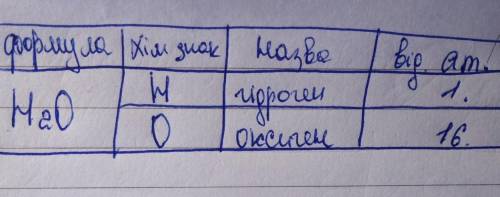 формула хім знак Назва від. ат.
H2O H гідроген 1.
O оксиген 16.